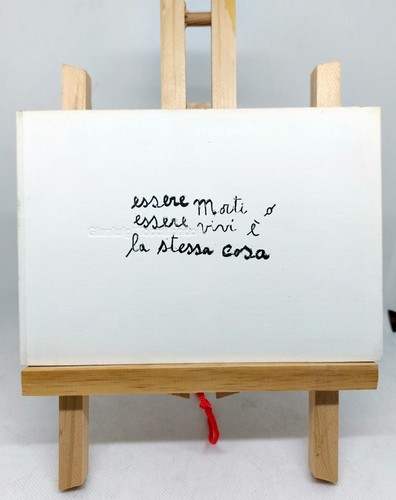 essere morti o
essere vivi è
la stessa cosa